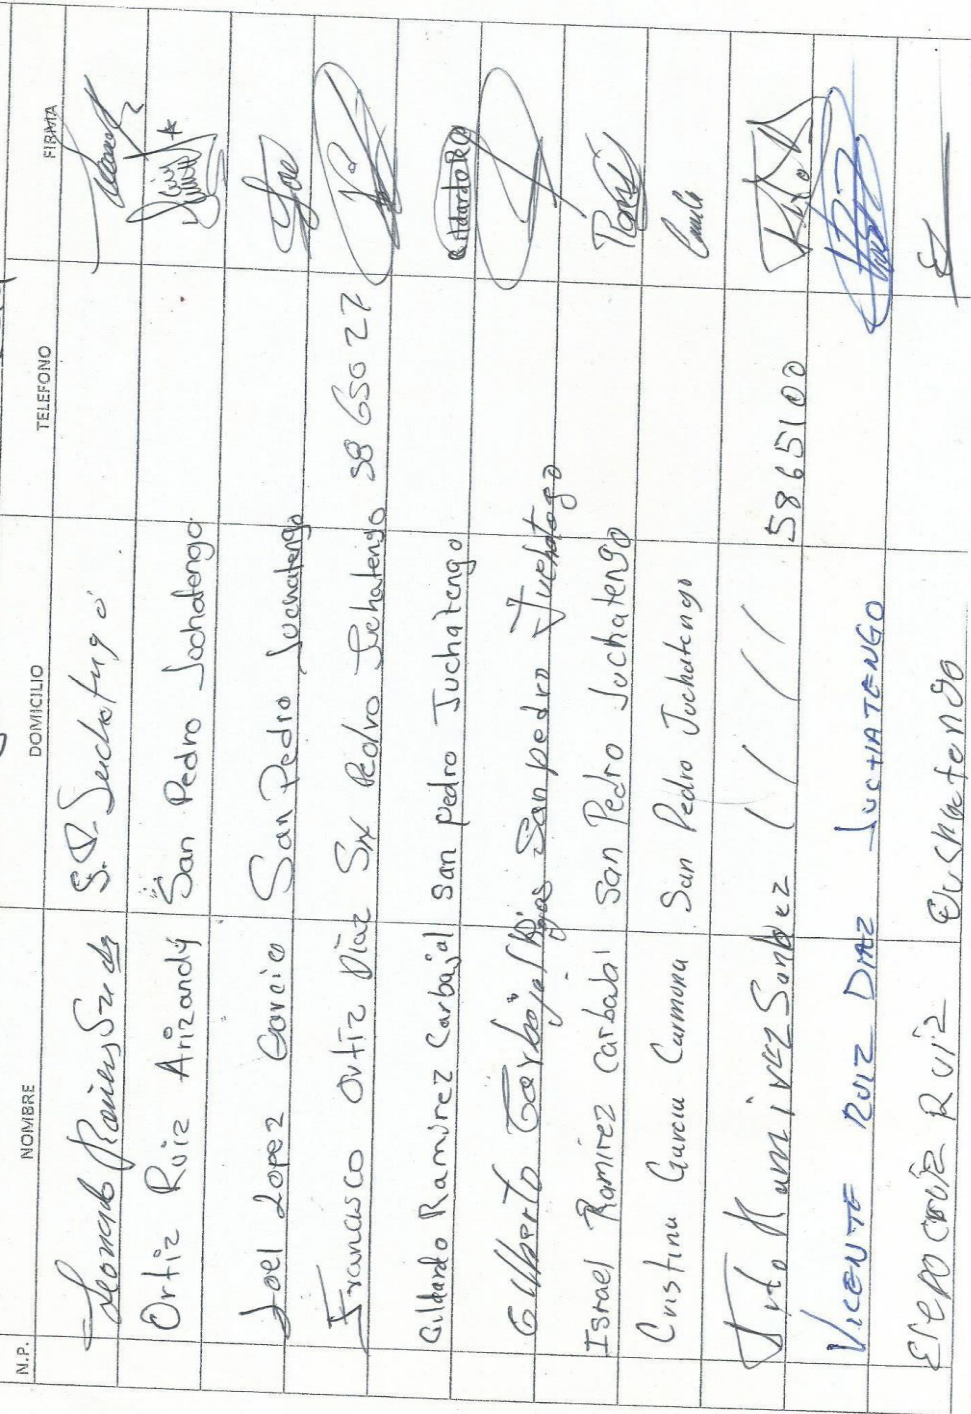 N.P. NOMBRE DOMICILIO TELEFONO FIRMA
Leonardo Ramirez S.P. Juchatengo
Ortiz Ruiz Arizandy San Pedro Jochatengo
Joel Lopez Garcia San Pedro Juchatengo Joel
Francusco Ortiz Díaz Sn Pedro Juchatengo 58 650 27
Gildardo Ramirez Carbajal san pedro Juchatengo Gildardo RC
Gilberto Carbajal Rojas San pedro Juchatego
Israel Ramirez Carbabal San Pedro Juchatengo
Cristina Garcia Carmona San Pedro Juchatengo
Ramirez Sanhez / / / / / 5865100
VICENTE RUIZ DIAZ JUCHATENGO
Cruz Ruiz Juchatengo